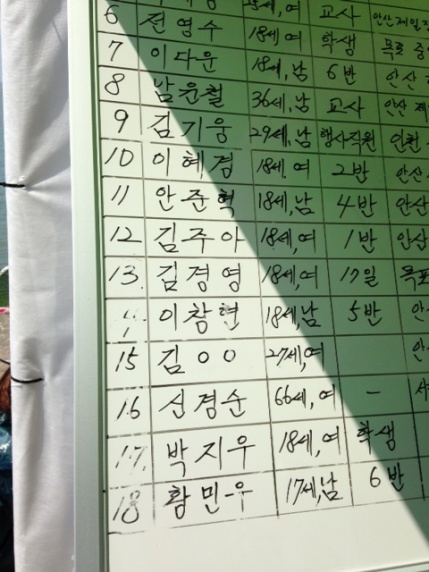 6 전영수 18세, 여 교사 안산제일
7 이다운 18세, 남 6반 안산
8 남윤철 36세, 남 교사 안산
9 김기웅 29세, 남 행사직원 인천
10 이혜경 18세, 여 2반 안산
11 안준혁 18세, 남 4반 안산
12 김주아 18세, 여 1반 안산
13. 김경영 18세, 여 17일 목포
이창현 18세, 남 5반 안
15 김○○ 27세, 여 안
16 신경순 66세, 여 –
17. 박지우 18세, 여 학생
18 황민우 17세, 남 6반